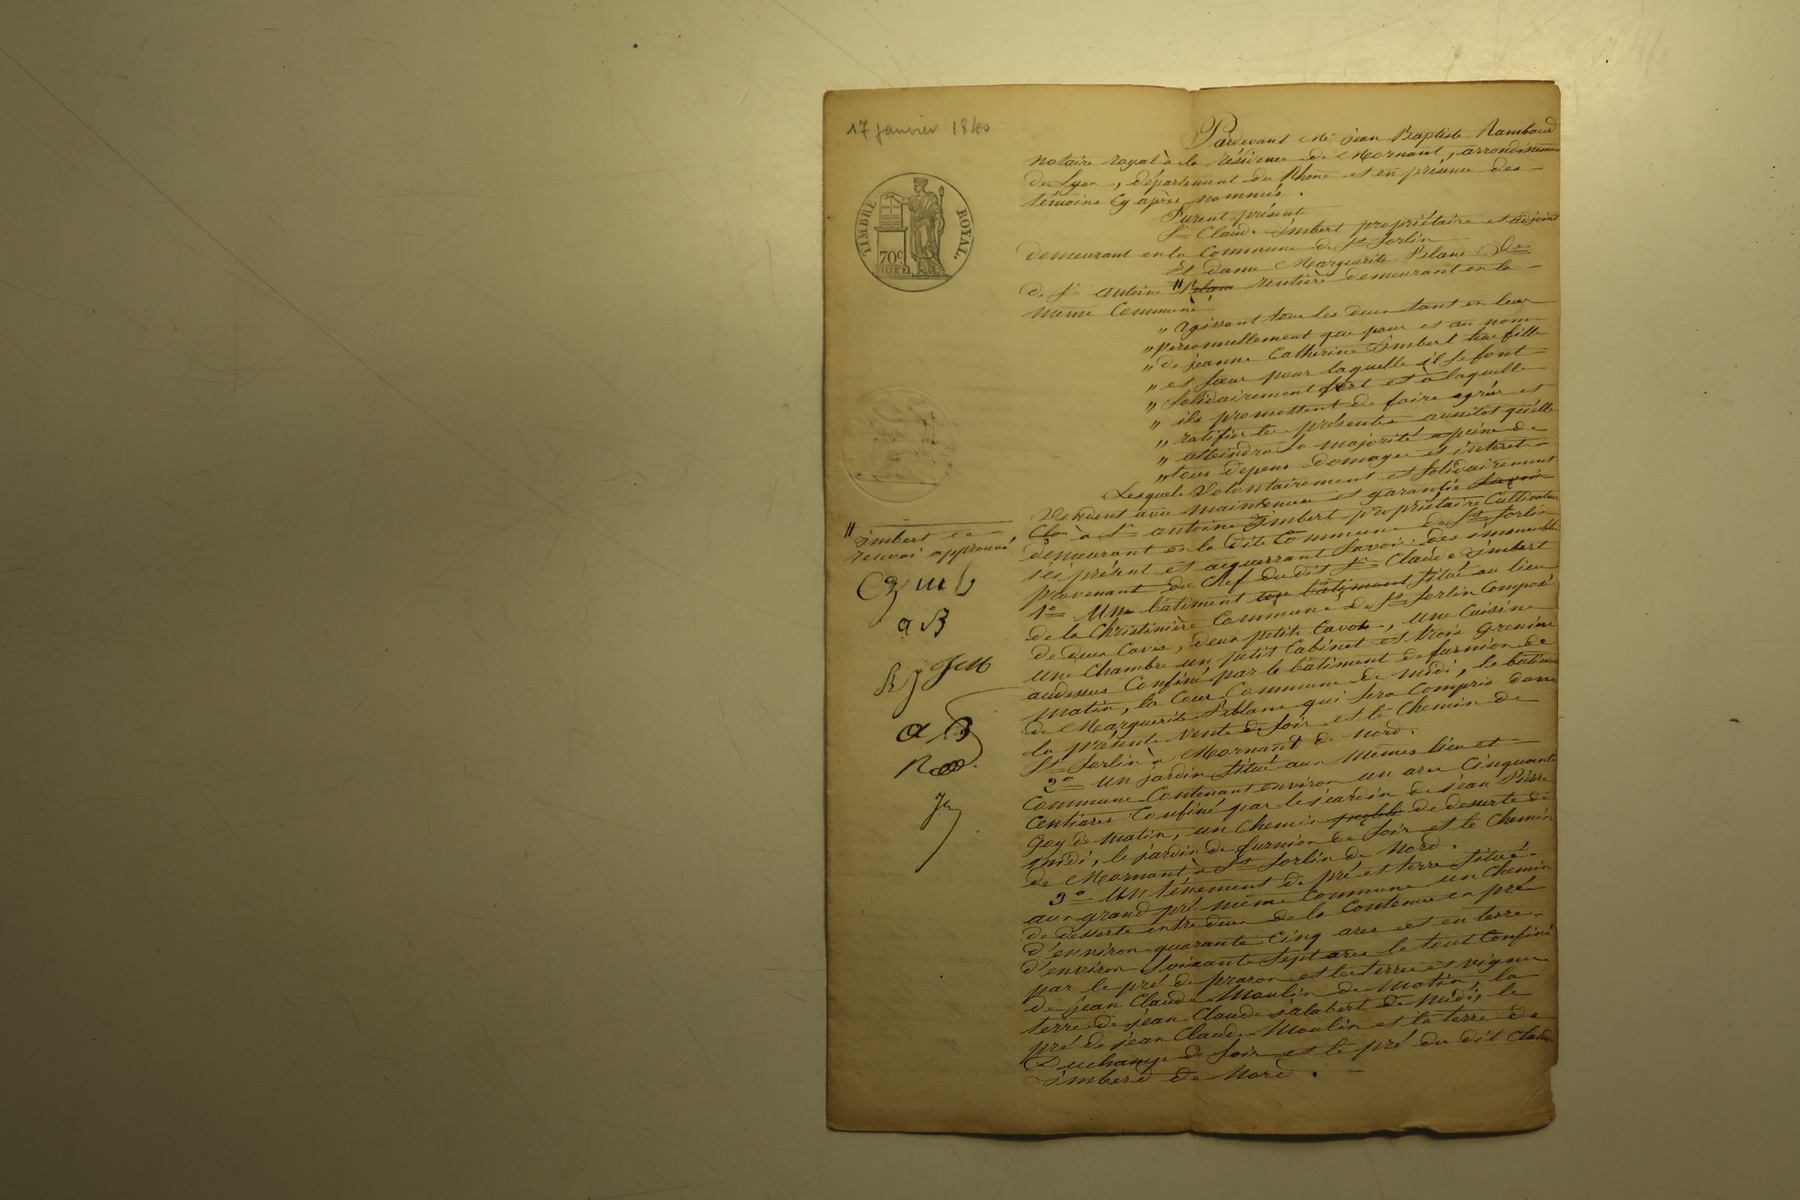 17 janvier 1840
TIMBRE ROYAL
70c
Pardevant Me jean Baptiste Rambaud
notaire royal à la résidence de Mornant, arrondissement
de Lyon, département du Rhône et en présence des
témoins cy après nommés.
Furent présent
Sr Claude imbert propriétaire et adjoint
demeurant en la Commune de St Sorlin
Et dame Marguerite Pilane
de Sr antoine " rentière demeurant en la
même Commune
" Agissant tous les deux tant en leur
" personnellement que pour et au nom
" de jeanne Catherine Imbert leur fille
" et sœur pour laquelle il se font
" solidairement fort et à laquelle
" ils promettent de faire agréer et
" ratifier les présentes aussitot qu'elle
" atteindra la majorité a peine de
" tous depens domages et interet
Lesquels Volontairement et solidairement
Vendent avec maintenue et garantie
à Sr antoine Imbert propriétaire Cultivateur
demeurant en la dite Commune de St Sorlin
ici présent et acquerrant Savoir: des immeubles
provenant du Chef du dit Sr Claude imbert
1o Un batiment situé au lieu
de la Christinière Commune de St Sorlin Composé
de deux Caves, deux petits Cavots, une Cuisine
une Chambre un petit Cabinet et trois greniers
audessus Confiné par le batiment de furnion de
matin, la Cour Commune de midi, le batiment
de Marguerite Pilane qui sera Compris dans
la présente Vente de soir et le Chemin de
St Sorlin à Mornant de nord.
2o un jardin situé aux mêmes lieu et
Commune Contenant environ un are Cinquante
Centiares Confiné par le jeardin de jean Pierre
Goy de matin, un Chemin de desserte de
midi, le jardin de furnion de soir et le Chemin
de Mornant à St Sorlin de nord.
3o Un ténement de pré et terre situé
aux grand pré même Commune un Chemin
de desserte entre deux de la Contenue en pré
d'environ quarante Cinq ares et en terre
d'environ soixante sept ares le tout Confiné
par le pré de prason et les terres et vignes
de jean Claude Moulin de Matin, la
terre de jean Claude salabert de Midi, le
pré de jean Claude Moulin et la terre de
Duchamp de soir et le pré du dit Claude
imberd de Nord.
" imbert
renvoi approuvé
a B
JCM
a B